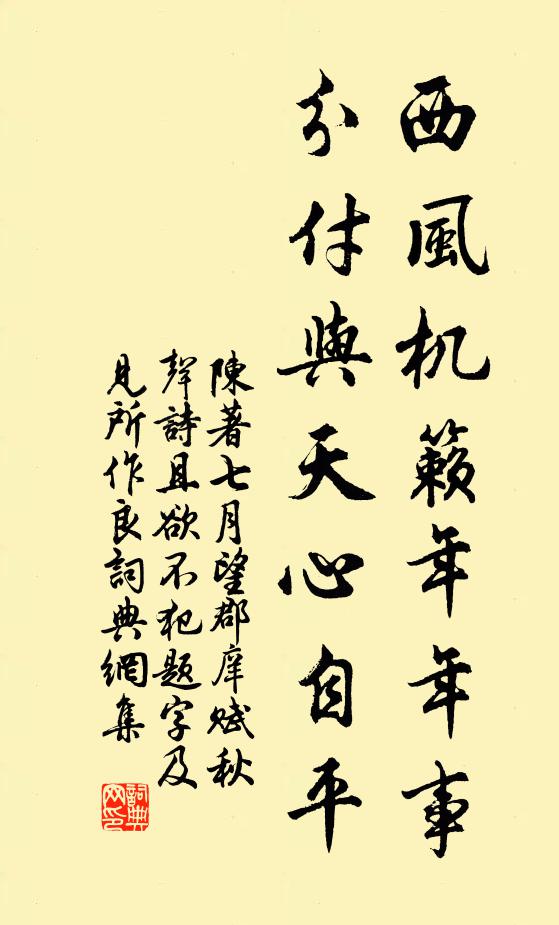 西風机籟年年事
分付與天心自平
陳著七月望郡庠賦秋
聲詩且欲不犯題字及
見所作良詞典網集
詞典
网印